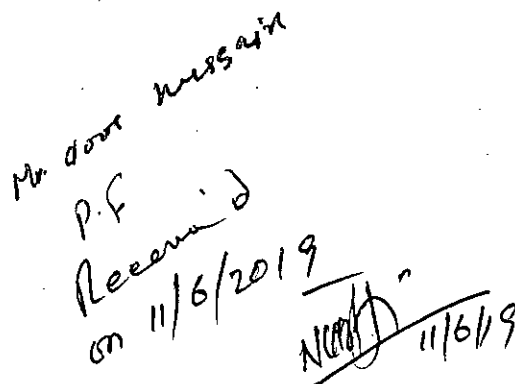 Mr. Noor Hussain
P.F
Received
on 11/6/2019
11/6/19